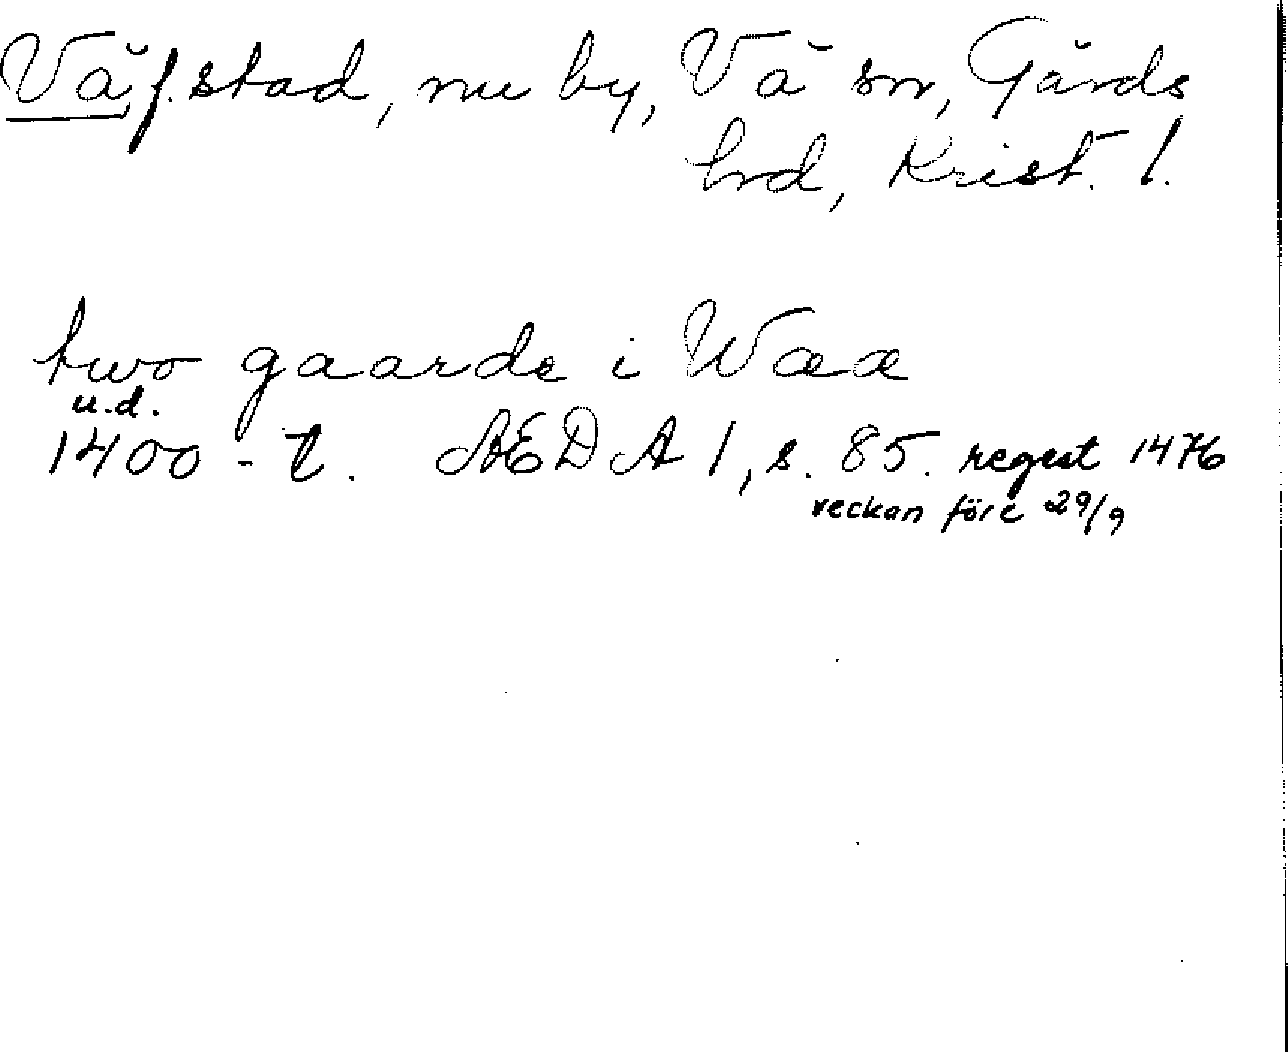 Vä, f. stad, nu by, Vä sn, Gärds
hrd, Krist. l.
two gaarde i Wææ
u.d.
1400-t. ÆDA 1, s. 85. regest 1476
veckan före 29/9